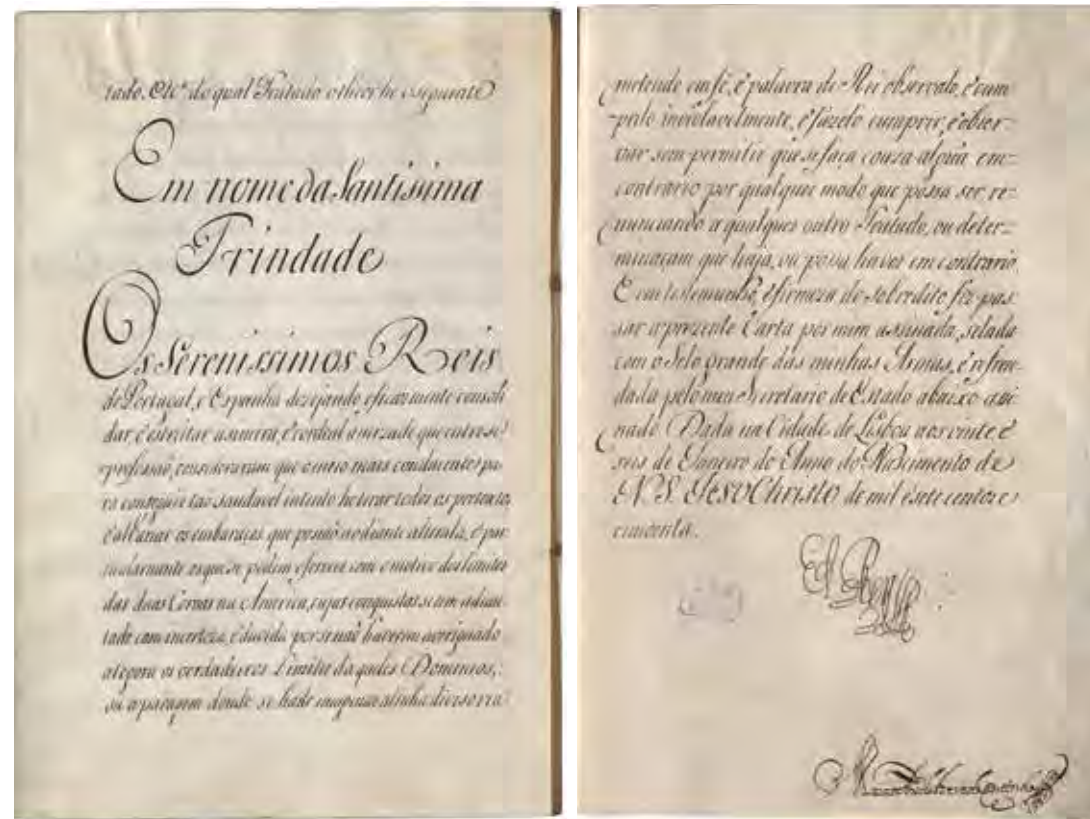 tado. do qual Tratado o theor he o seguinte
Em nome da Santissima
Trindade
Os Serenissimos Reis
de Portugal, e Espanha dezejando efficazmente consoli
dar, e estreitar a sincera, e cordial amizade que entre si
professaõ, consideraram que o meio mais conducente pa
ra conseguir taõ saudavel intento he tirar todos os pretextos,
e allanar os embaraços, que possaõ ao diante alterala, e par
ticularmente os que se podem offerecer com o motivo dos Limites
das duas Coroas na America, cujas conquistas se tem adian
tado com incerteza, e duvida por se naõ haverem averiguado
ategora os verdadeiros Limites daqueles Dominios,
ou a paragem donde se hade imaginar a linha divisoria
metendo em fé, e palavra de Rei observalo, e cum
prilo inviolavelmente, e fazelo cumprir, e obser-
var sem permitir que se faça couza algũa em
contrario por qualquer modo que possa ser, re-
nunciando a qualquer outro Tratado, ou deter-
minaçam que haja, ou possa haver em contrario.
E em testemunho, e firmeza do sobredito fiz pas-
sar a prezente Carta por mim assinada, selada
com o Selo grande das minhas Armas, e refren-
dada pelo meu Secretario de Estado abaixo assi-
nado. Dada na Cidade de Lisboa aos vinte e
seis de Janeiro do Anno do Nascimento de
N. S. JESV Christo de mil e sete centos e
cincoenta.